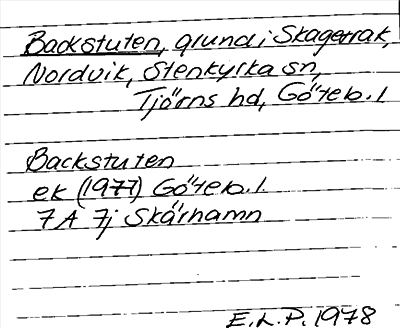 Backstuten, grund i Skagerrak,
Nordvik, Stenkyrka sn,
Tjörns hd, Göteb. l
Backstuten
ek (1977) Göteb. l
7A 7j Skärhamn
E.L.P. 1978